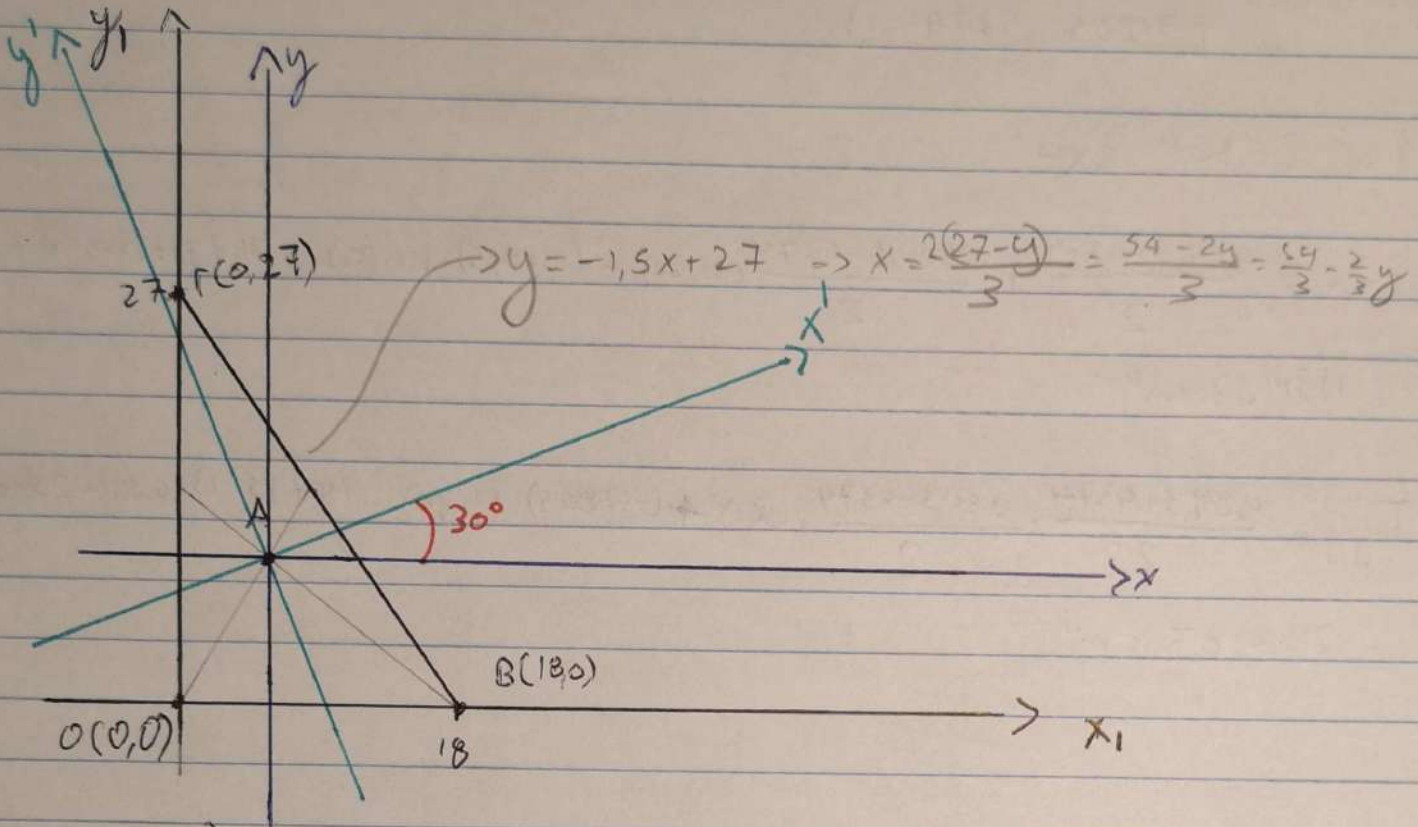 y' y₁ y
27 Γ(0,27)
→ y = -1,5x + 27 → x = 2(27-y)/3 = 54-2y/3 = 54/3 - 2/3 y
x'
A 30°
x
B(18,0)
O(0,0) 18 x₁